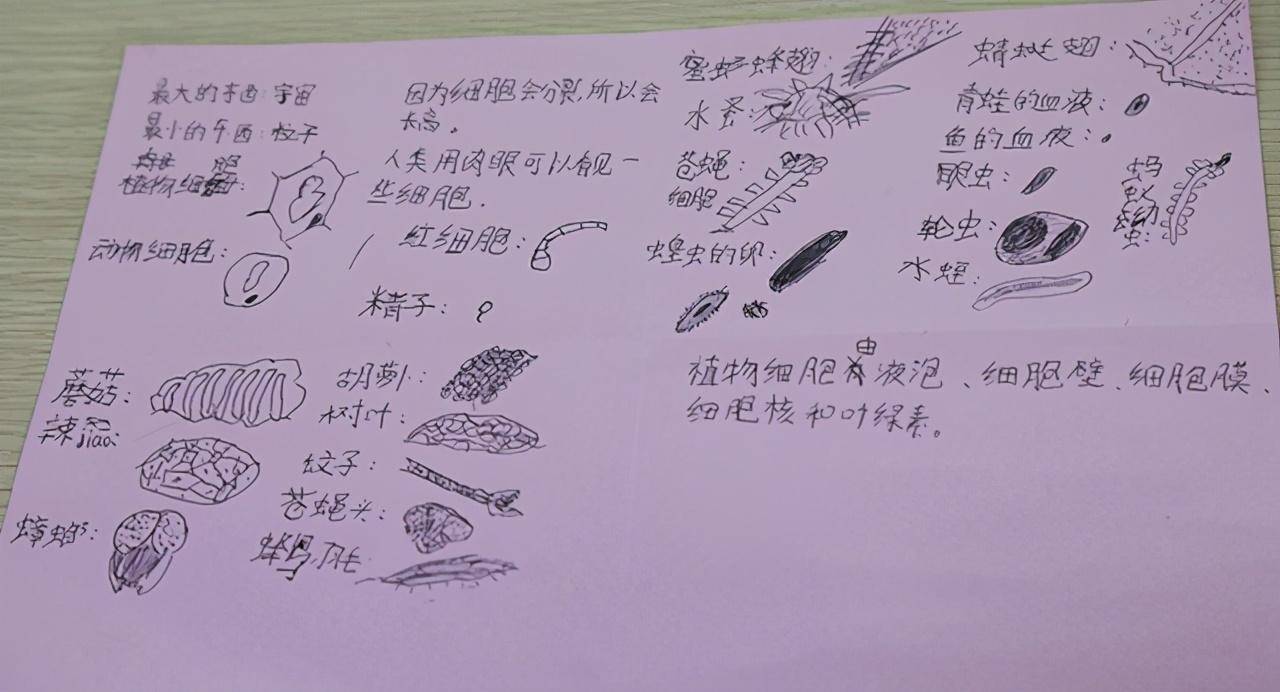 最大的东西:宇宙
最小的东西:粒子
植物细胞:
动物细胞:
因为细胞会分裂,所以会
长高。
人类用肉眼可以看见一
些细胞.
红细胞:
精子:
蜜蜂翅:
水蚤:
苍蝇:
细胞
蝗虫的卵:
蜻蜓翅:
青蛙的血液:
鱼的血液:
眼虫:
蚂
蚁
幼
虫:
轮虫:
水蛭:
蘑菇:
辣jiao:
蟑螂:
胡萝卜:
树叶:
蚊子:
苍蝇头:
蜂鸟羽毛:
植物细胞由液泡、细胞壁、细胞膜、
细胞核和叶绿素。